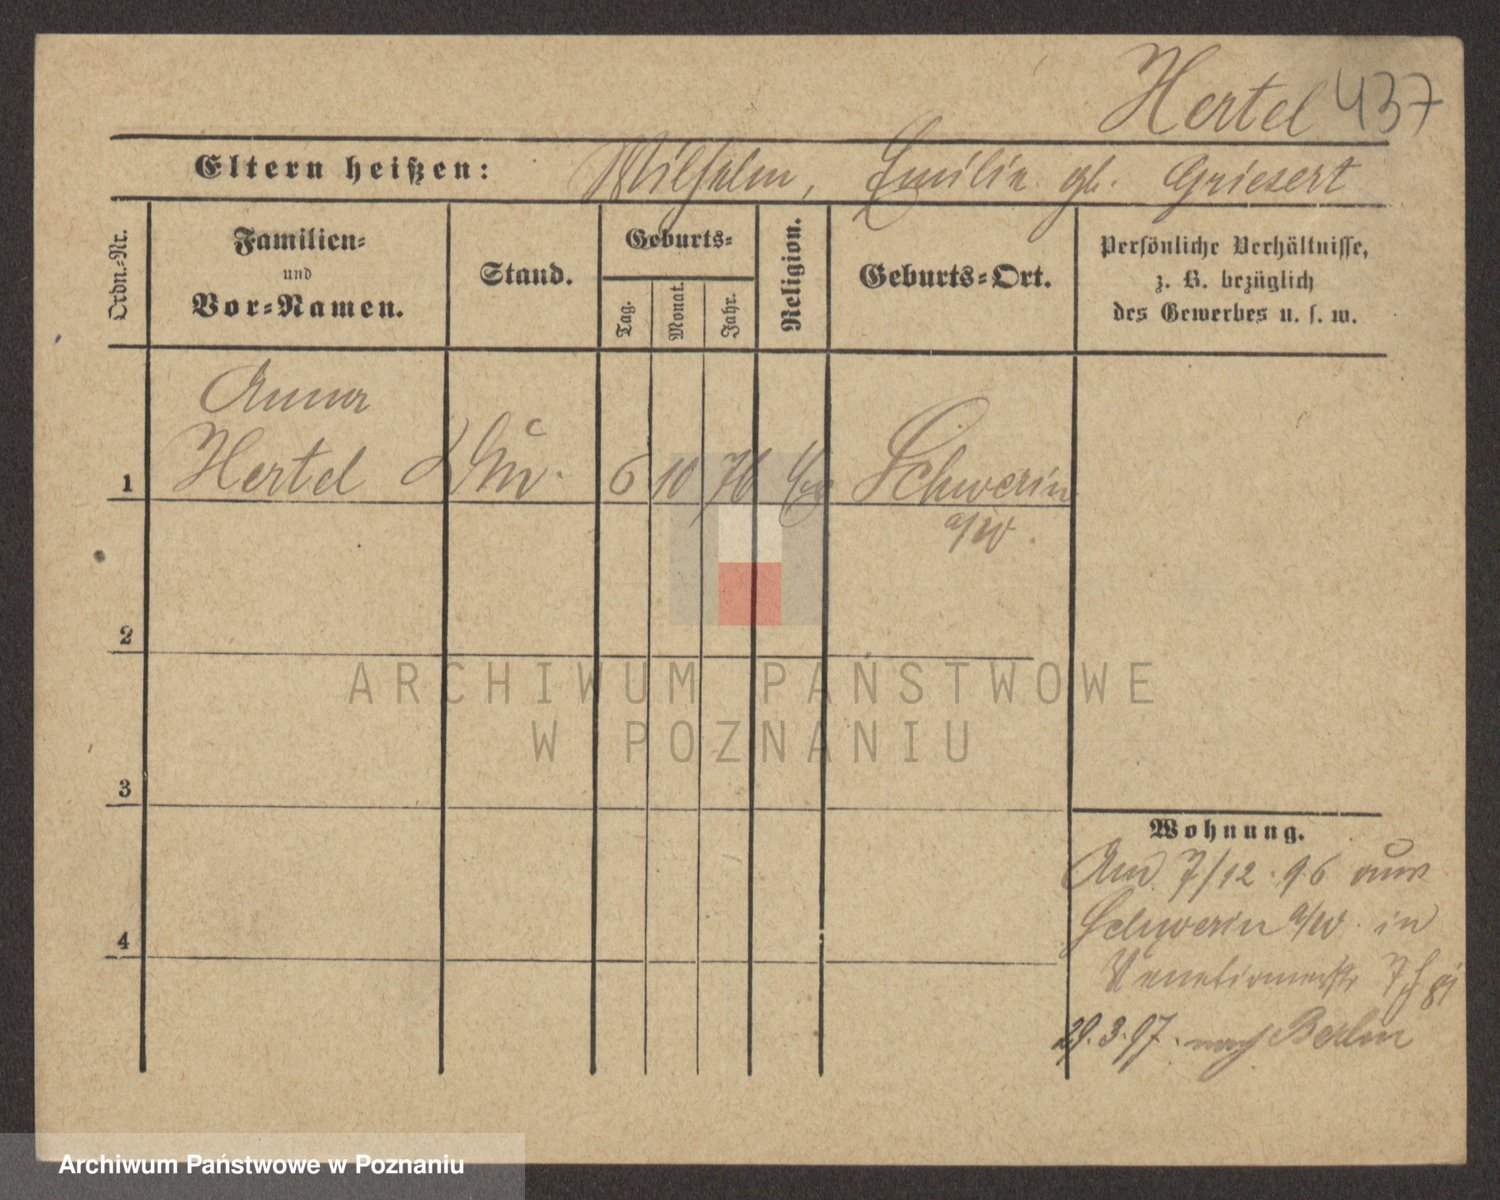 Hertel 437
Eltern heißen: Wilhelm, Emilie gb. Griesert
Ordn.-Nr.
Familien-
und
Vor-Namen.
Stand.
Geburts-
Tag.
Monat.
Jahr.
Religion.
Geburts-Ort.
Persönliche Verhältnisse,
z. B. bezüglich
des Gewerbes u. s. w.
Anna
1 Hertel 6 10 76 Schwerin
a/W.
2
3
4
Wohnung.
Am 7/12. 96 aus
Schwerin a/W. in
29.3.97. nach Berlin
ARCHIWUM PAŃSTWOWE
W POZNANIU
Archiwum Państwowe w Poznaniu